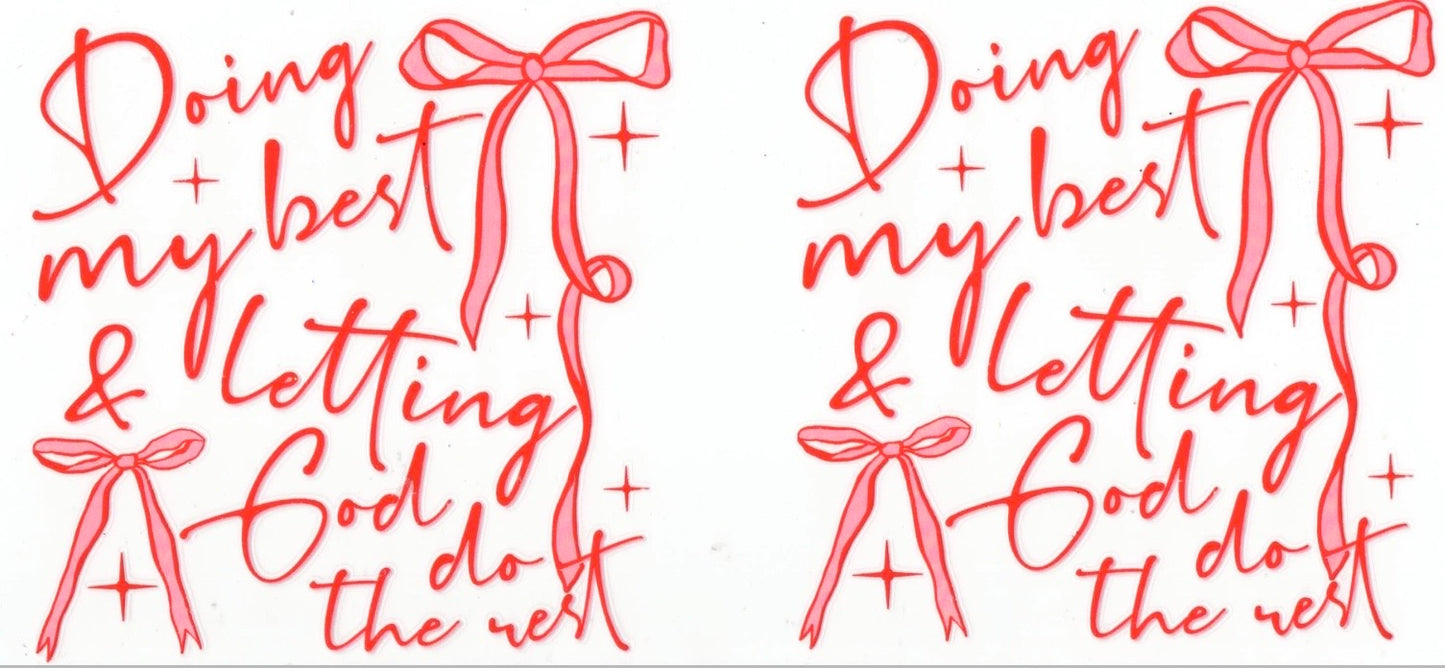 Doing
my best
& letting
God do
the rest
Doing
my best
& letting
God do
the rest